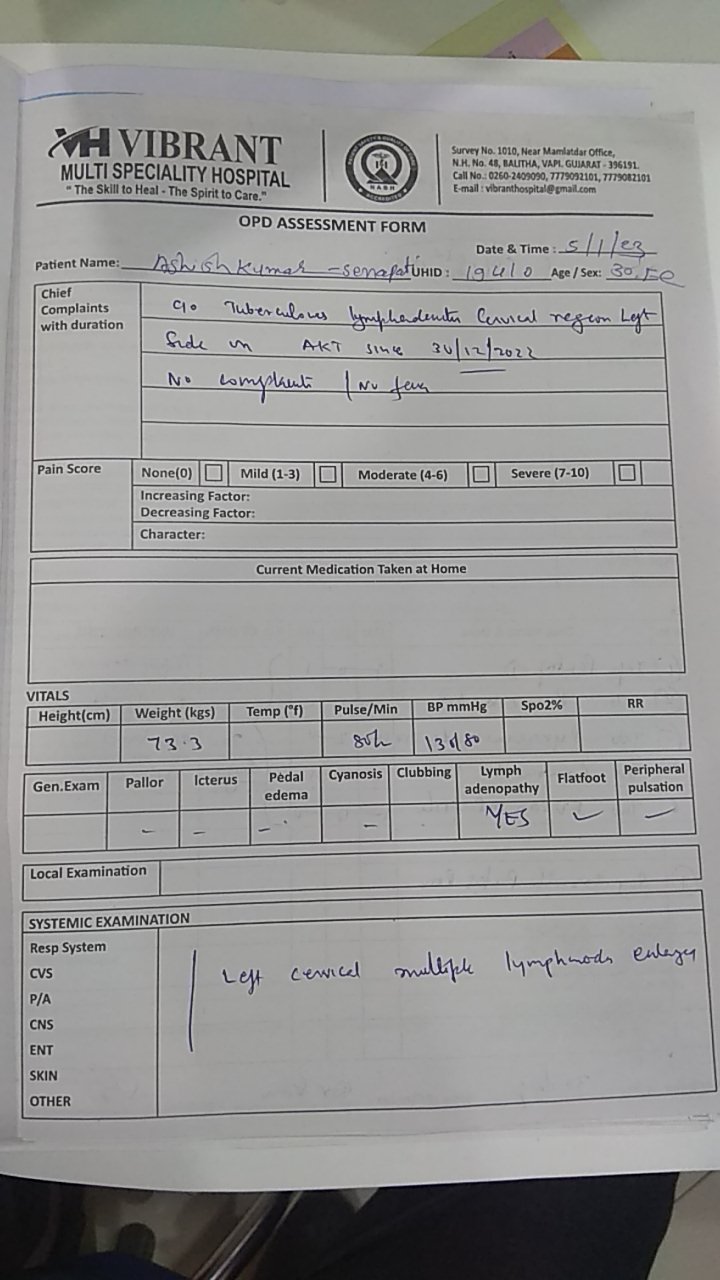 VH VIBRANT
MULTI SPECIALITY HOSPITAL
"The Skill to Heal - The Spirit to Care."
NABH
ACCREDITED
Survey No. 1010, Near Mamlatdar Office,
N.H. No. 48, BALITHA, VAPI. GUJARAT - 396191.
Call No.: 0260-2409090, 7779092101, 7779082101
E-mail : vibranthospital@gmail.com
OPD ASSESSMENT FORM
Date & Time : 5/1/23
Patient Name: Ashish Kumar - Senapati UHID : 19410 Age / Sex: 30
Chief Complaints with duration
c/o Tuberculous lymphadenitis Cervical region Left
Side on AKT since 30/12/2022
No complaints / No fever
Pain Score None(0) Mild (1-3) Moderate (4-6) Severe (7-10)
Increasing Factor:
Decreasing Factor:
Character:
Current Medication Taken at Home
VITALS
Height(cm) Weight (kgs) Temp (°f) Pulse/Min BP mmHg Spo2% RR
73.3 130/80
Gen.Exam Pallor Icterus Pedal edema Cyanosis Clubbing Lymph adenopathy Flatfoot Peripheral pulsation
– – – – YES – –
Local Examination
SYSTEMIC EXAMINATION
Resp System
CVS
Left cervical multiple lymphnods
P/A
CNS
ENT
SKIN
OTHER